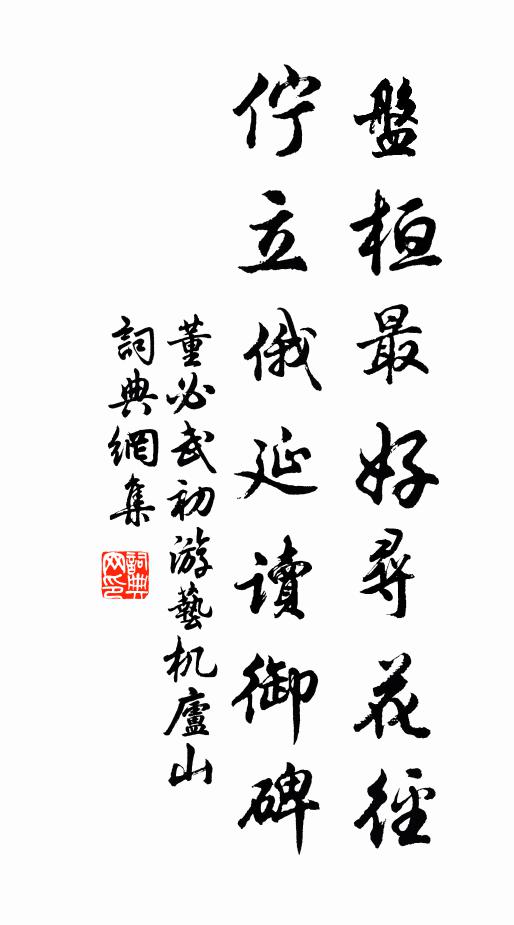 盤桓最好尋花徑
佇立俄延讀御碑
董必武初游藝机廬山
詞典網集
詞典
网印